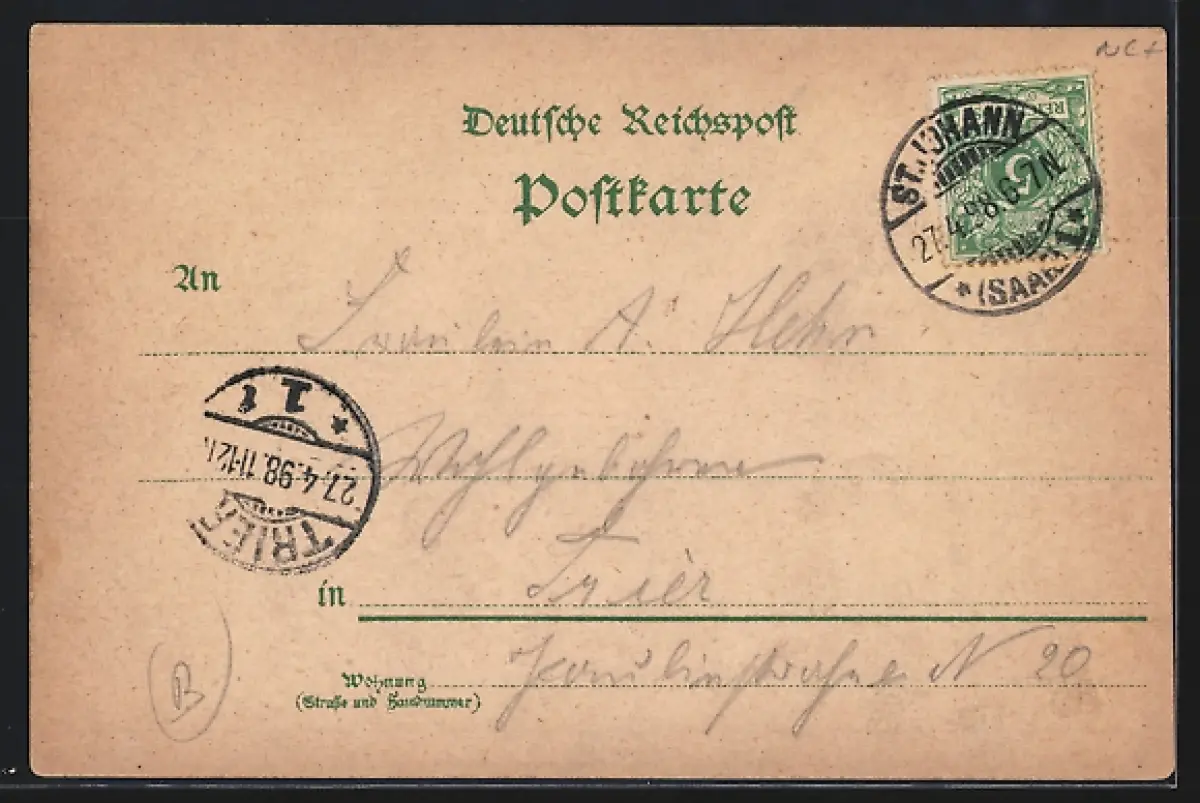 Deutsche Reichspost
Postkarte
ST. JOHANN
27.4.98 6-7N.
* (SAAR) 1 *
5
An Fräulein A. Hehn
Wohlgeboren
in Trier
Wohnung Paulinstraße N 20
(Straße und Hausnummer)
TRIER
27.4.98. 11-12
* 1 t
B